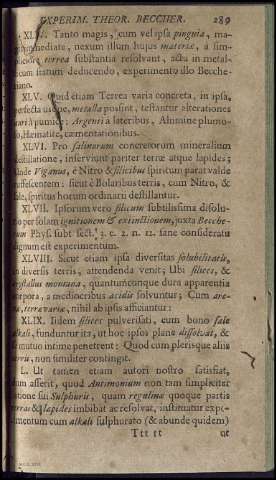 EXPERIM. THEOR. BECCHER. 289
XLIV. Tanto magis, cum vel ipsa pinguia, ma-
immediate, nexum illum hujus materiæ, a sim-
terrea substantia resolvant, acta in metal-
statum deducendo, experimento illo Becche-
riano.
XLV. Quid etiam Terrea varia concreta, in ipsa,
perfecta usque, metalla possint, testantur alterationes
Auri à pumice: Argenti à lateribus. Alumine plumo-
so, Hæmatite, cæmentationibus.
XLVI. Pro salinorum concretorum mineralium
destillatione, inserviunt pariter terræ atque lapides;
Viganus, è Nitro & silicibus spiritum parat valde
effervescentem: sicut è Bolaribus terris, cum Nitro, &
sale, spiritus horum ordinarii destillantur.
XLVII. Ipsorum vero silicum subtilissima dissolu-
tio per solam ignitionem & extinctionem, juxta Becche-
rum Phys. subt sect. 3. c. 2. n. 12. sane consideratu
dignum est experimentum.
XLVIII. Sicut etiam ipsa diversitas solubilitatis,
in diversis terris, attendenda venit; Ubi silices, &
crystallus montana, quantumcunque dura apparentia
corpora, a mediocribus acidis solvuntur; Cum are-
næ, terræ variæ, nihil ab ipsis afficiantur:
XLIX. Iidem silices pulverisati, cum bono sale
alkali, funduntur ita, ut hoc ipsos plane dissolvat, &
se mutuo intime penetrent: Quod cum plerisque aliis
terris, non similiter contingit.
L. Ut tamen etiam autori nostro satisfiat,
dum asserit, quod Antimonium non tam simpliciter
ratione sui Sulphuris, quam regulinæ quoque partis
terras & lapides imbibat ac resolvat, instituatur expe-
rimentum cum alkali sulphurato (& abunde quidem)
Ttt tt ut